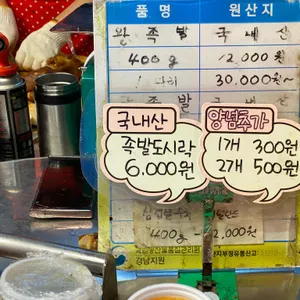 품 명 원 산 지
왕 족 발 국 내 산
400g 12,000원
1 마리 30.000원~
족 발 국 내 산
국내산
족발도시락
6.000원
양념추가
1개 300원
2개 500원
400g - 12,000원
경남지원